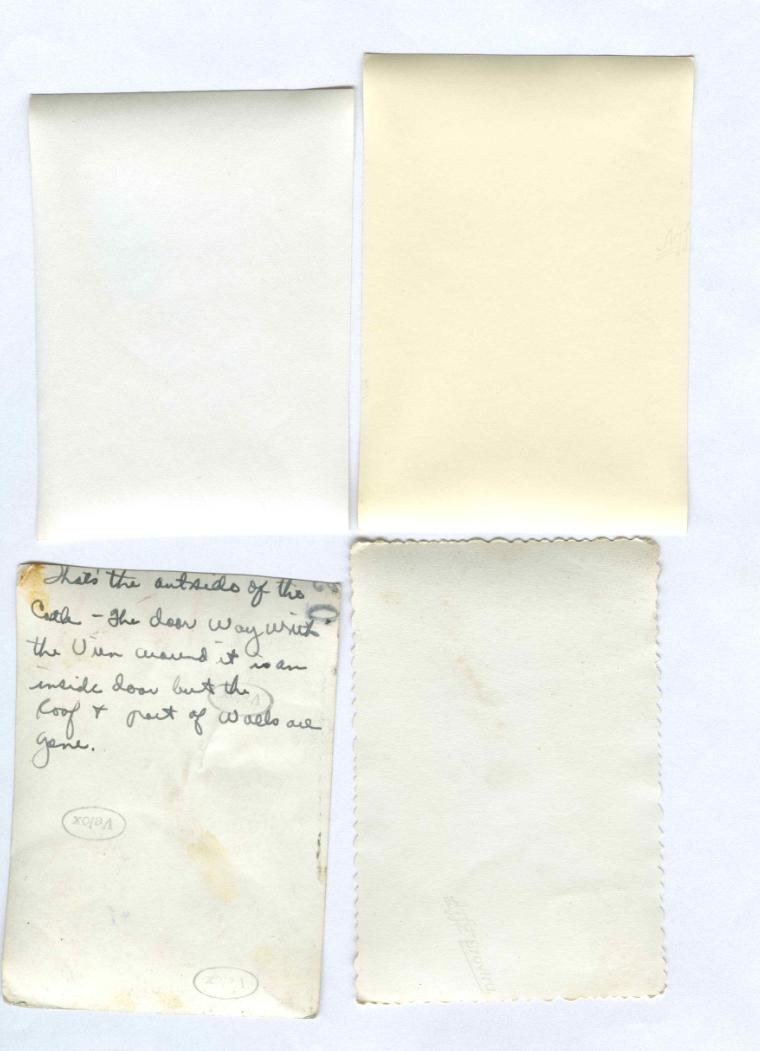 That's the outside of the
Castle - The door way with
the Vien around it is an
inside door but the
Roof + part of walls are
gone.
Velox
Velox
Velox